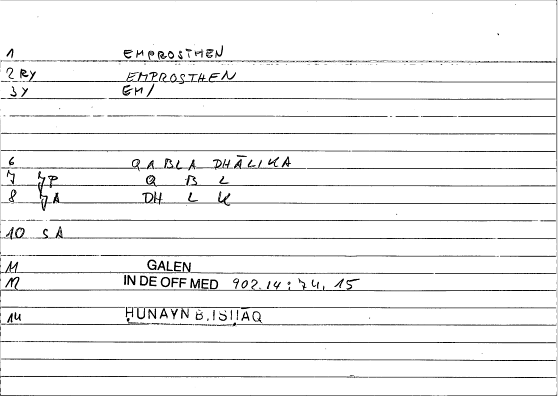 1 EMPROSTHEN
2 RY EMPROSTHEN
3 Y EM/
6 QABLA DHĀLIKA
7 7P Q B L
8 7A DH L K
10 SA
11 GALEN
12 IN DE OFF MED 902.14 : 74, 15
14 ḤUNAYN B. ISḤĀQ